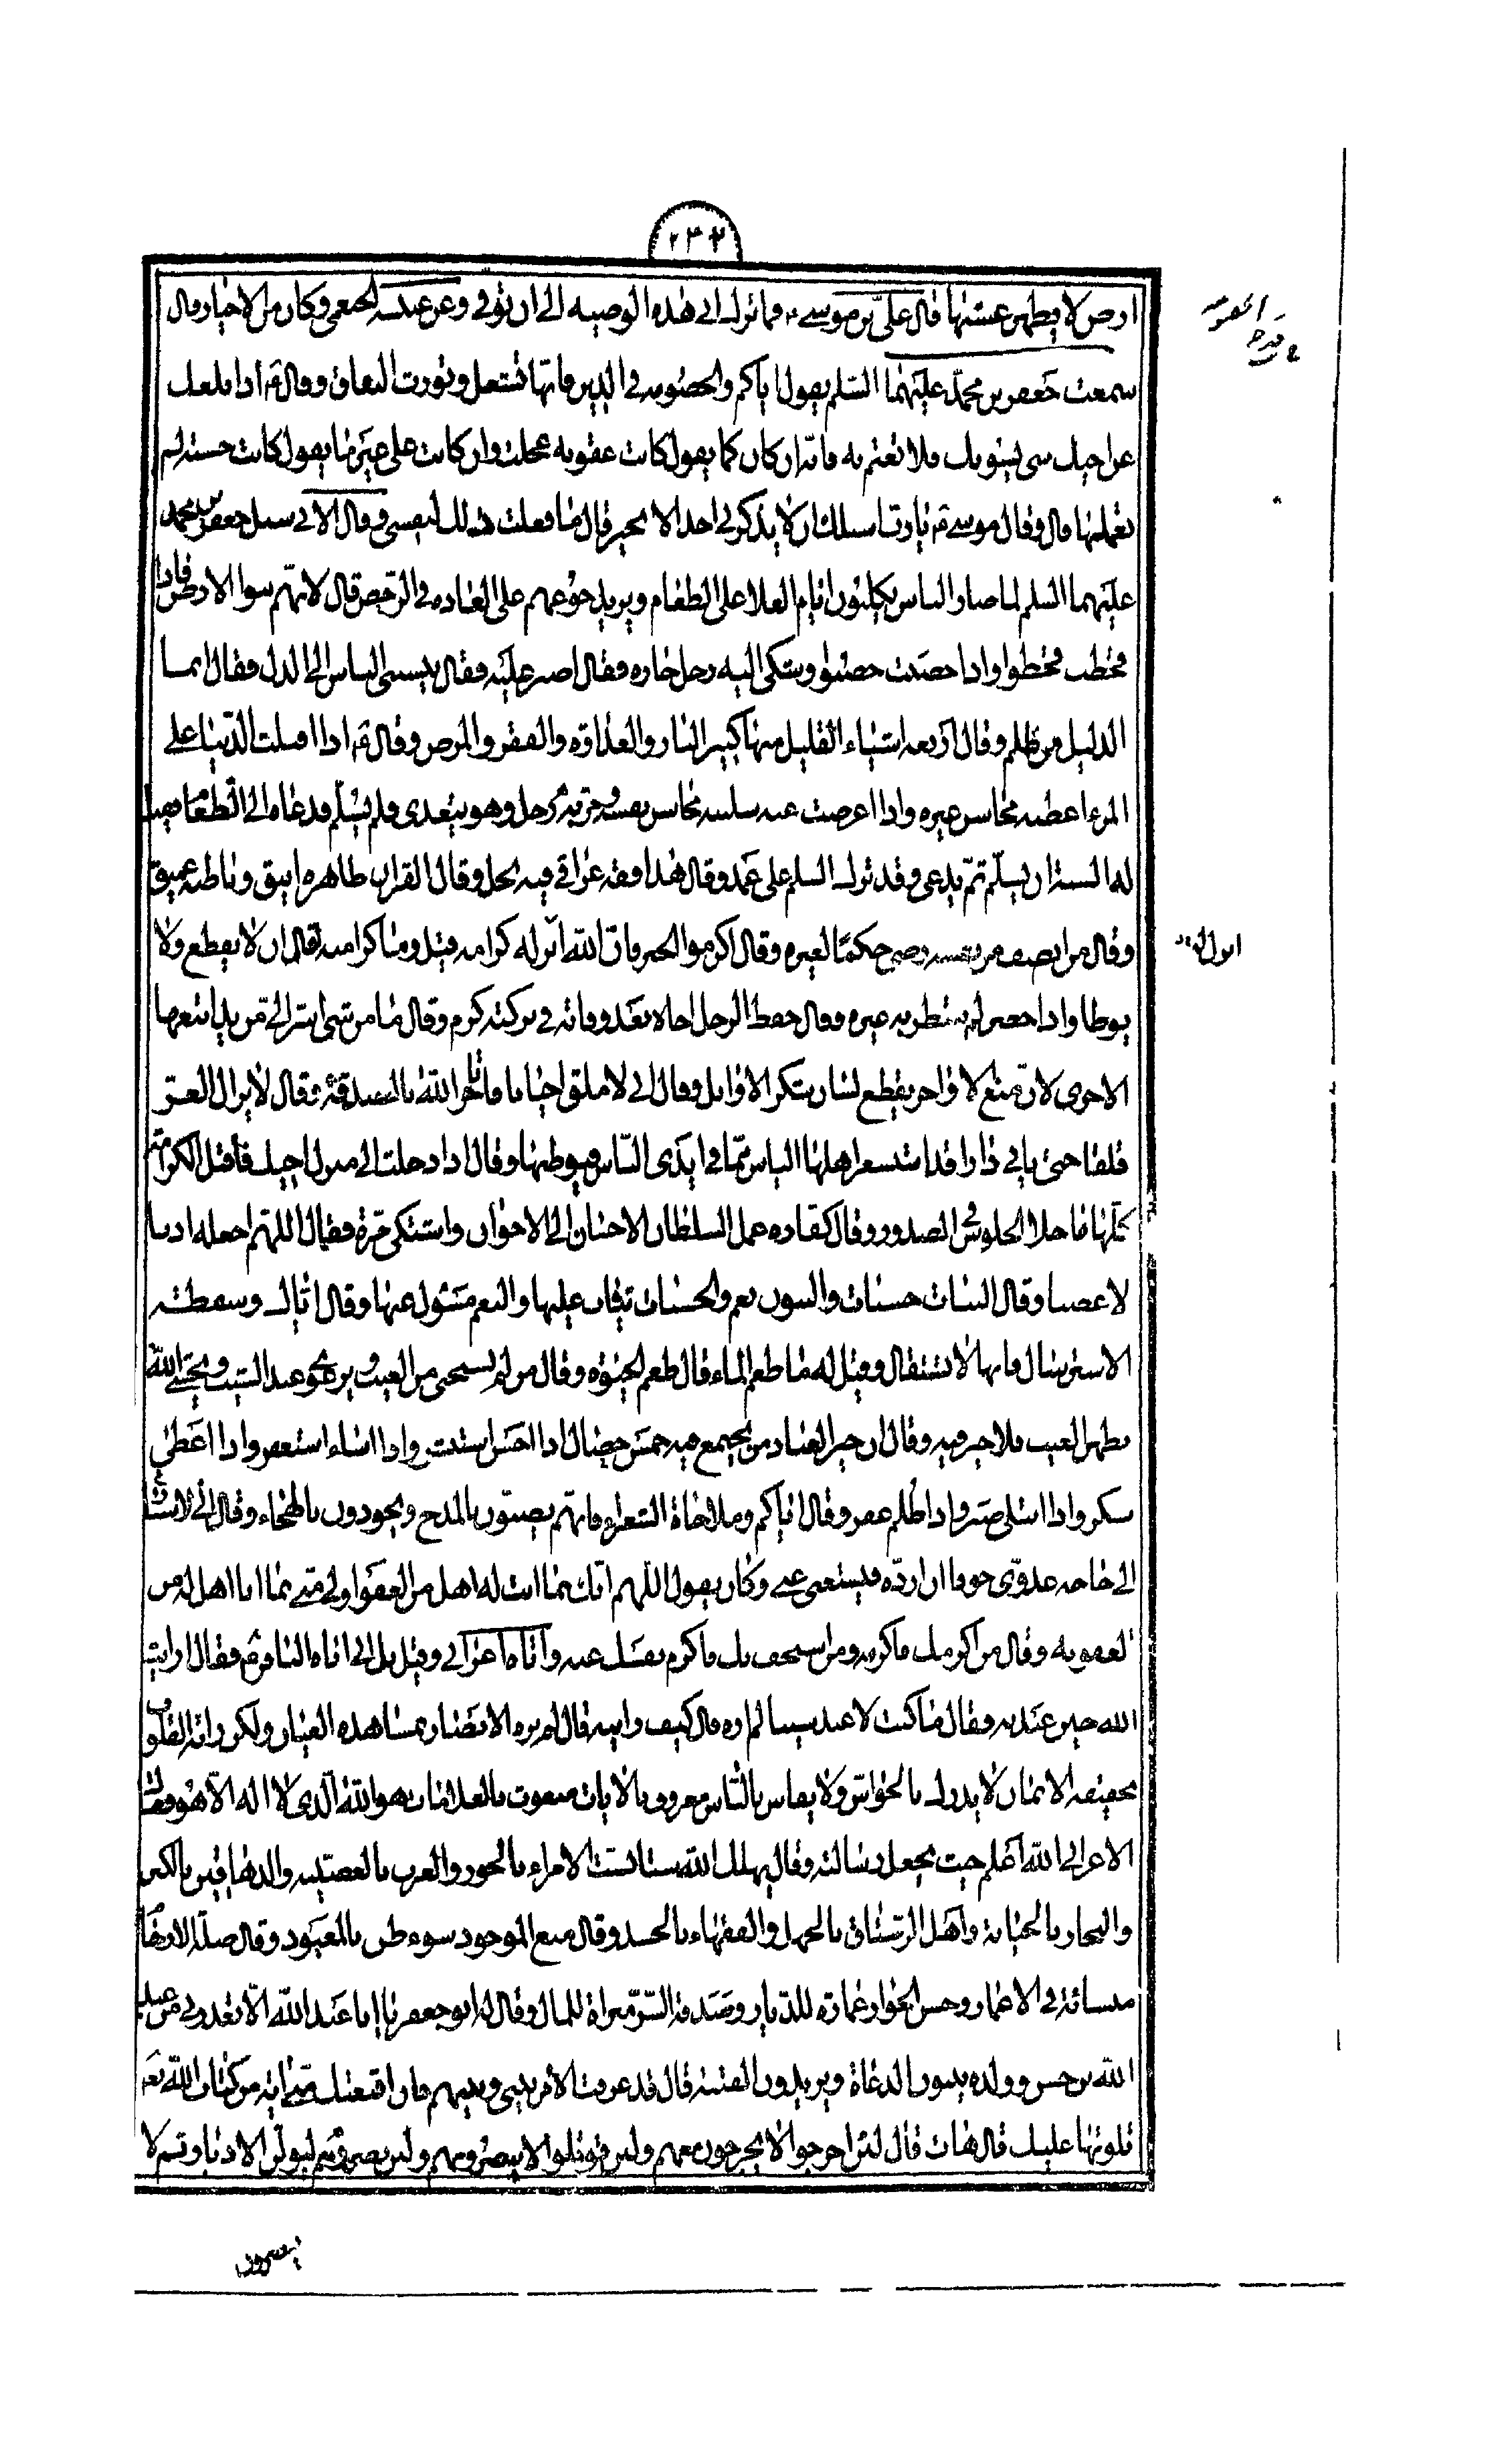 ٢٣٢
ارض لا يظهر عشبها قال علي بن موسى ع فما ترك ابي هذه الوصيه الى ان توفي وعن عنبسه الخثعمي وكان من الاخيار قال
سمعت جعفر بن محمد عليهما السلم يقول اياكم والخصومه في الدين فانها تشغل وتورث النفاق وقال ع اذا بلغك
عن اخيك شي يسوءك فلا تغتم به فانه ان كان كما يقول كانت عقوبه عجلت وان كانت على غير ما يقول كانت حسنة لم
تعملها قال وقال موسى ع يا رب اسئلك ان لا يذكرني احد الا بخير قال ما فعلت ذلك لنفسي وقال الابي سئل جعفر بن محمد
عليهما السلم لما صار الناس يكلبون ايام الغلا على الطعام ويزيد جوعهم على العاده في الرخص قال لانهم بنوا الارض فاذا
قحطت قحطوا واذا خصبت خصبوا وشكى اليه رجل جاره فقال اصبر عليه فقال ينسبني الناس الى الذل فقال انما
الذليل من ظلم وقال اربعه اشياء القليل منها كثير النار والعداوه والفقر والمرض وقال ع اذا اقبلت الدنيا على
المرء اعطته محاسن غيره واذا اعرضت عنه سلبته محاسن نفسه ومر به رجل وهو يتغدى فلم يسلم فدعاه الى الطعام فقيل
له السنه ان يسلم ثم يدعى وقد ترك السلم على عمد وقال هذا فقه عراقي فيه بخل وقال القران ظاهره انيق وباطنه عميق
وقال من انصف من نفسه رضي حكما لغيره وقال اكرموا الخبز فان الله انزل له كرامه قيل وما كرامته قال ان لا يقطع ولا
يوطا واذا حضر لم ينتظر به غيره وقال حفظ الرجل اخاه بعد وفاته في تركته كرم وقال ما من شي اسر الي من يد اتبعها
الاخرى لان منع الاواخر يقطع لسان شكر الاوايل وقال اني لاملق احيانا فاتاجر الله بالصدقة وقال لا يزال العز
قلقا حتى ياتي دارا قد استشعر اهلها الياس مما في ايدي الناس فيوطنها وقال اذا دخلت الى منزل اخيك فاقبل الكرامة
كلها ما خلا الجلوس في الصدور وقال كفاره عمل السلطان الاحسان الى الاخوان واشتكى مرة فقال اللهم اجعله ادبا
لا غضبا وقال البنات حسنات والبنون نعم والحسنات يثاب عليها والنعم مسئول عنها وقال اياك وسقطة
الاسترسال فانها لا تستقال وقيل له ما طعم الماء قال طعم الحيوه وقال من لم يستحي من العيب ويرعو عند الشيب ويخش الله
بظهر الغيب فلا خير فيه وقال ان خير العباد من يجتمع فيه خمس خصال اذا احسن استبشر واذا اساء استغفر واذا اعطي
شكر واذا ابتلي صبر واذا ظلم غفر وقال اياكم وملاحاة الشعراء فانهم يضنون بالمدح ويجودون بالهجاء وقال اني لاسارع
الى حاجه عدوي خوفا ان ارده فيستغني عني وكان يقول اللهم انك بما انت له اهل من العفو اولى مني بما انا اهل له من
العقوبه وقال من اكرمك فاكرمه ومن استخف بك فاكرم نفسك عنه واتاه اعرابي وقيل بل اتى اباه الباقر ع فقال ارايت
الله حين عبدته فقال ما كنت لاعبد شيئا لم اره قال كيف رايته قال لم يره الابصار بمشاهده العيان ولكن راته القلوب
بحقيقه الايمان لا يدرك بالحواس ولا يقاس بالناس معروف بالايات منعوت بالعلامات هو الله الذي لا اله الا هو فقال
الاعرابي الله اعلم حيث يجعل رسالته وقال يهلك الله ستا بست الامراء بالجور والعرب بالعصبيه والدهاقين بالكبر
والتجار بالخيانة واهل الرستاق بالجهل والفقهاء بالحسد وقال منع الموجود سوء ظن بالمعبود وقال صلة الارحام
منساة في الاعمار وحسن الجوار عماره للديار وصدقة السر مثراة للمال وقال له ابو جعفر يا ابا عبد الله الا تعذرني من عبد
الله بن حسن وولده يبثون الدعاة ويريدون الفتنه قال قد عرفت الامر بيني وبينهم فان اقنعتك مني اية من كتاب الله تع
تلوتها عليك قال هات قال لئن اخرجوا لا يخرجون معهم ولئن قوتلوا لا ينصرونهم ولئن نصروهم ليولن الادبار وثم لا
ينصرون